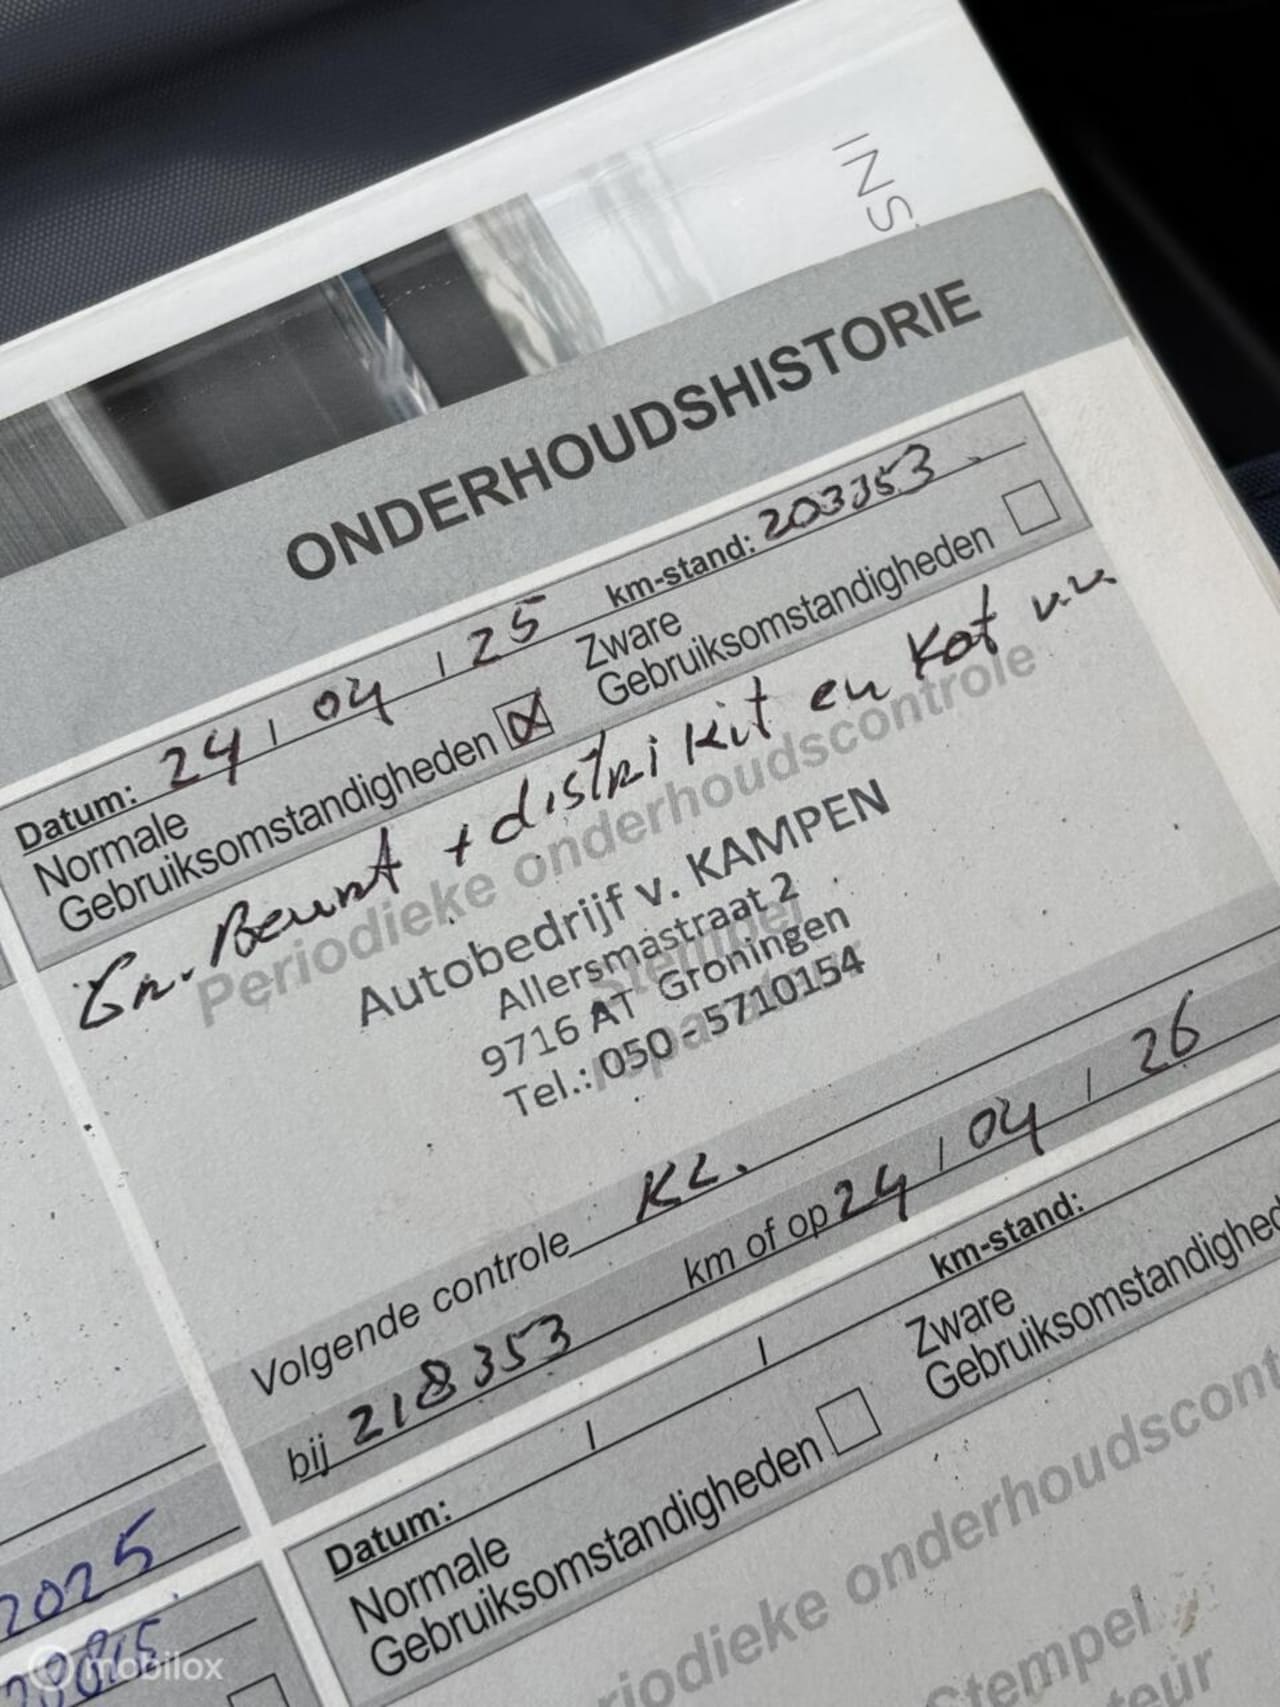 INS
ONDERHOUDSHISTORIE
Datum: 24 / 04 / 25 km-stand: 203353
Normale Gebruiksomstandigheden Zware Gebruiksomstandigheden
Gr. Beurt + distri kit en kat v.v.
Periodieke onderhoudscontrole
Stempel
Autobedrijf v. KAMPEN
Allersmastraat 2
9716 AT Groningen
Tel.: 050 - 5710154
Volgende controle KL.
bij 218353 km of op 24 / 04 / 26
Datum: / / km-stand:
Normale Gebruiksomstandigheden Zware Gebruiksomstandighed
riodieke onderhoudscont
Stempel
teur
2025
mobilox